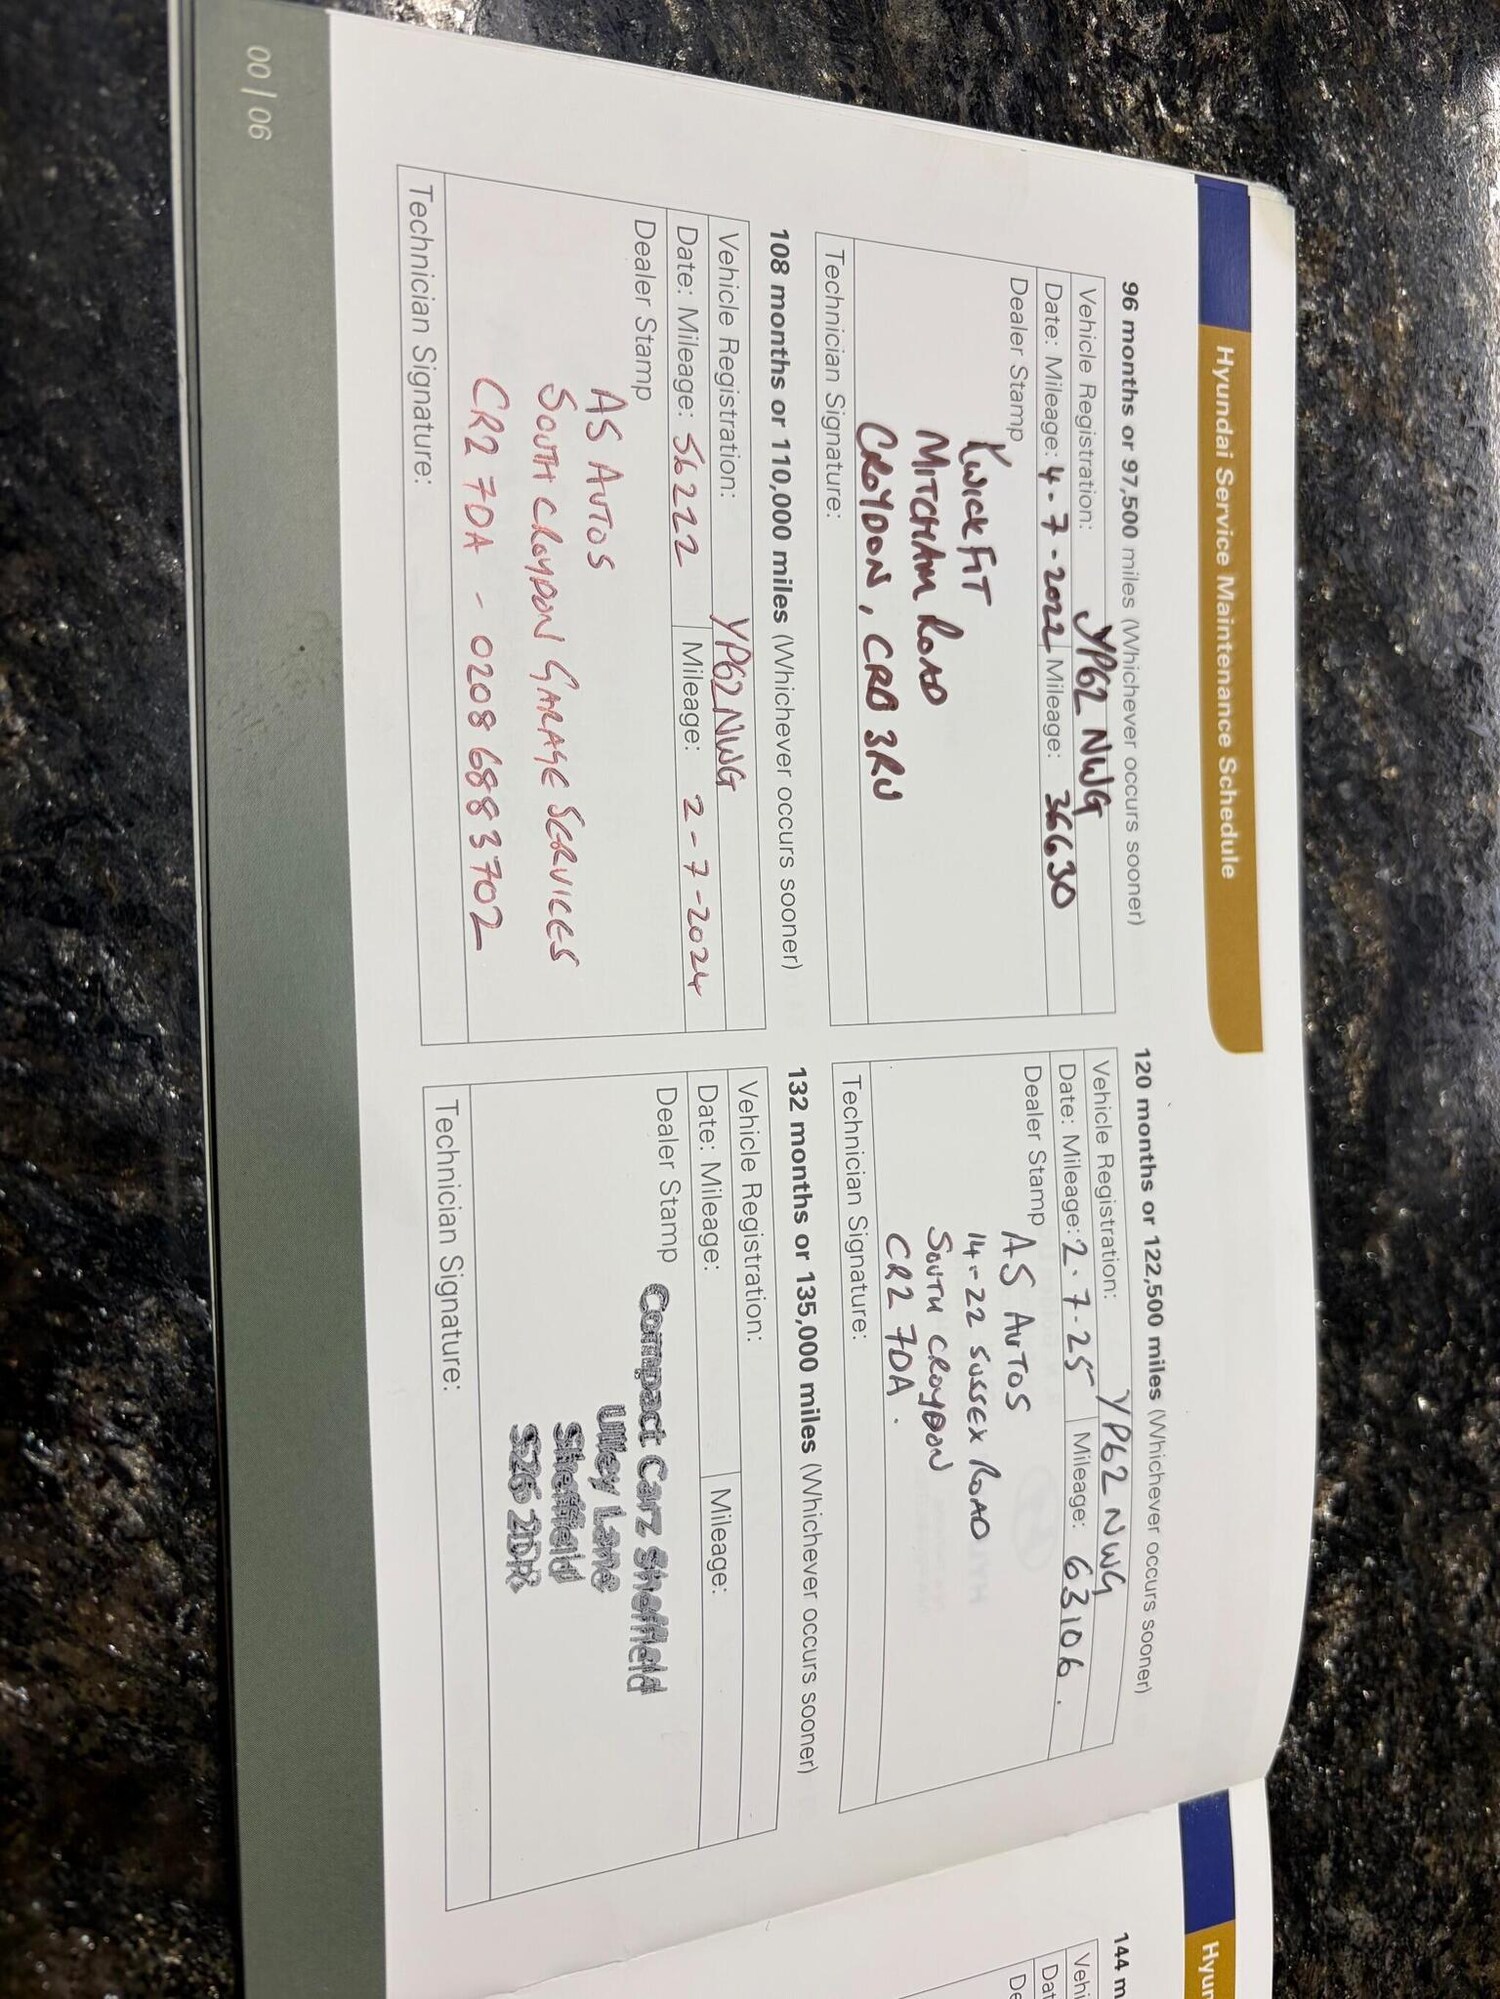 Hyundai Service Maintenance Schedule
96 months or 97,500 miles (Whichever occurs sooner)
Vehicle Registration: YP62 NWG
Date: Mileage: 4-7-2022 Mileage: 36630
Dealer Stamp
KWICK FIT
MITCHAM ROAD
CROYDON, CR0 3RU
Technician Signature:
108 months or 110,000 miles (Whichever occurs sooner)
Vehicle Registration: YP62NWG
Date: Mileage: 56222 Mileage: 2-7-2024
Dealer Stamp
AS AUTOS
SOUTH CROYDON GARAGE SERVICES
CR2 7DA - 0208 688 3702
Technician Signature:
120 months or 122,500 miles (Whichever occurs sooner)
Vehicle Registration: YP62 NWG
Date: Mileage: 2-7-25 Mileage: 63106.
Dealer Stamp
AS AUTOS
14-22 SUSSEX ROAD
SOUTH CROYDON
CR2 7DA.
Technician Signature:
132 months or 135,000 miles (Whichever occurs sooner)
Vehicle Registration:
Date: Mileage: Mileage:
Dealer Stamp
Compact Carz Sheffield
Ulley Lane
Sheffield
S26 2DR
Technician Signature:
00 | 06
Hyun
144 m
Vehi
Dat
De